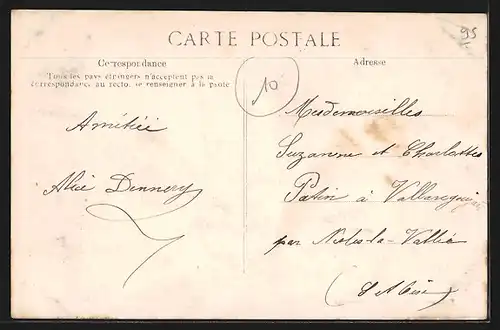 CARTE POSTALE
Correspondance
Tous les pays étrangers n'acceptent pas la
correspondance au recto. se renseigner à la poste
Adresse
10
95
Amitié
Alice Dennery
Mesdemoiselles
Suzanne et Charlottes
Patin à
par Nesles-la-Vallée